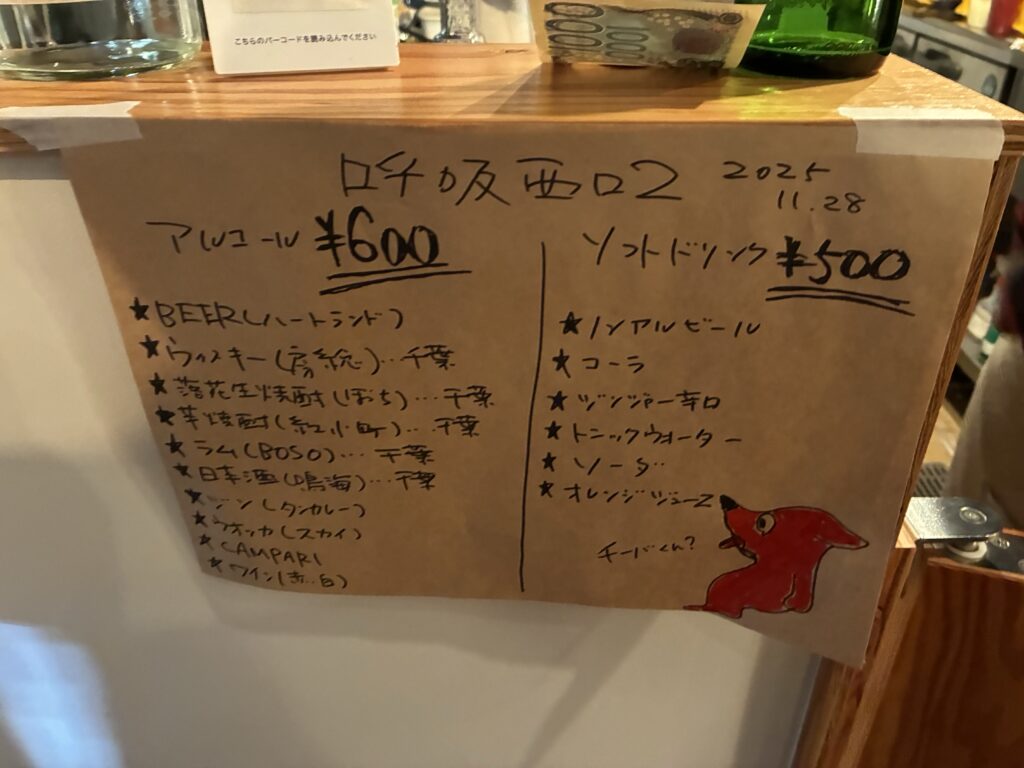 こちらのバーコードを読み込んでください
1000
呼坂西口2
2025
11.28
アルコール ¥600
★BEER(ハートランド)
★ウィスキー(房総)…千葉
★落花生焼酎(ぼっち)…千葉
★芋焼酎(紅小町)…千葉
★ラム(BOSO)…千葉
★日本酒(鳴海)…千葉
★ジン(タンカレー)
★ウオッカ(スカイ)
★CAMPARI
★ワイン(赤・白)
ソフトドリンク ¥500
★ノンアルビール
★コーラ
★ジンジャー辛口
★トニックウォーター
★ソーダ
★オレンジジュース
チーバくん?